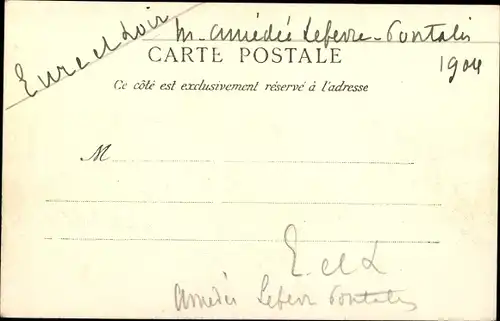 Eure et Loir
M. Amédée Lefevre-Pontalis
1904
CARTE POSTALE
Ce côté est exclusivement réservé à l'adresse
M
E. et L
Amédée Lefevre Pontalis